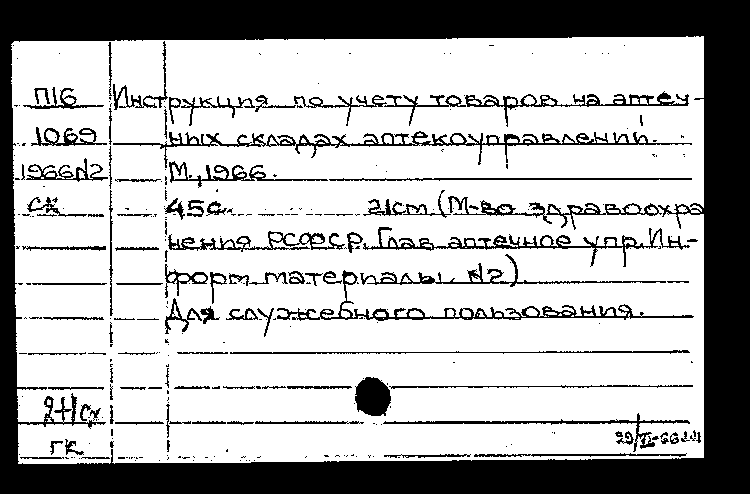 П16 Инструкция по учету товаров на аптеч-
1069 ных складах аптекоуправлений.
1966N2 М., 1966.
сх 45с. 21cm. (М-во здравоохра
нения РСФСР. Глав аптечное упр. Ин-
форм. материалы. N2).
Для служебного пользования.
2+1сх
гк 29/VI-66